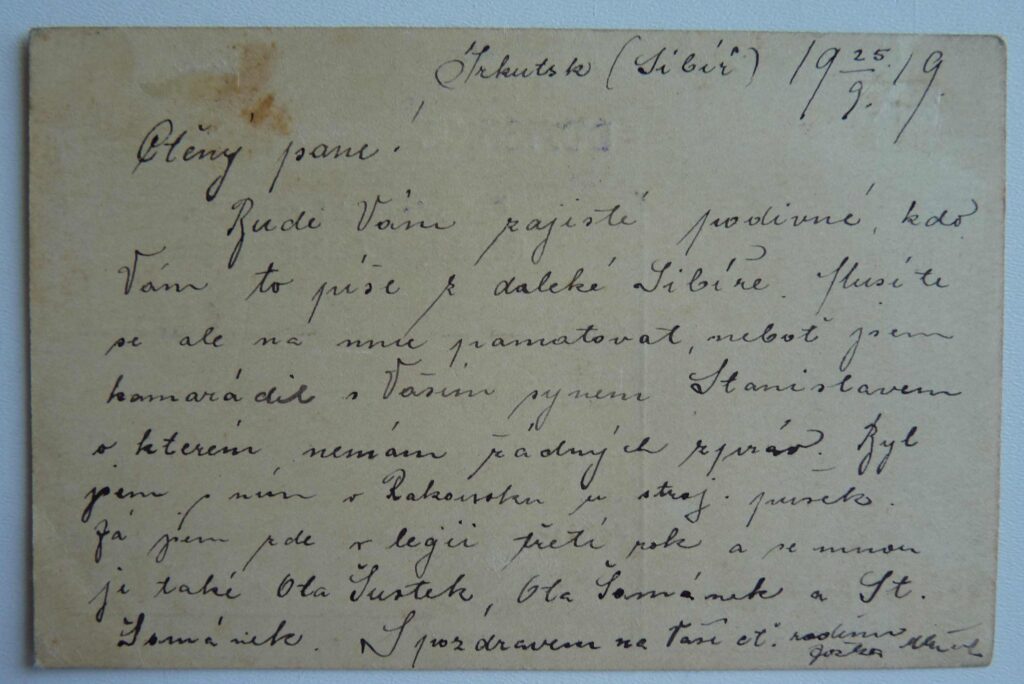 Irkutsk (Sibiř) 19 25./9. 19.
Ctěný pane!
Bude Vám zajisté podivné, kdo
Vám to píše z daleké Sibíře. Musíte
se ale na mne pamatovat, neboť jsem
kamarádil s Vaším synem Stanislavem
o kterém nemám žádných zpráv. Byl
jsem s ním v Rakousku u stroj. pušek.
Já jsem zde v legii třetí rok a se mnou
je také Ota Šustek, Ota Šománek a St.
Šománek. S pozdravem na Vaší ct. rodinu